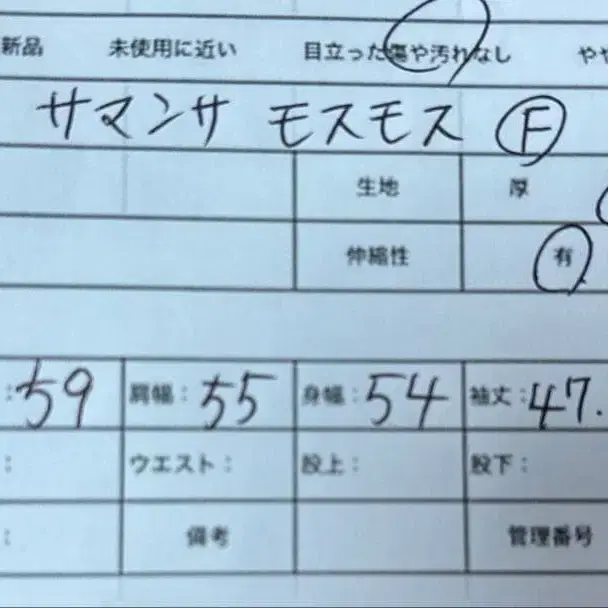 新品 未使用に近い 目立った傷や汚れなし やや
サマンサ モスモス F
生地 厚
伸縮性 有
:59 肩幅:55 身幅:54 袖丈:47.
: ウエスト: 股上: 股下:
: 備考 管理番号